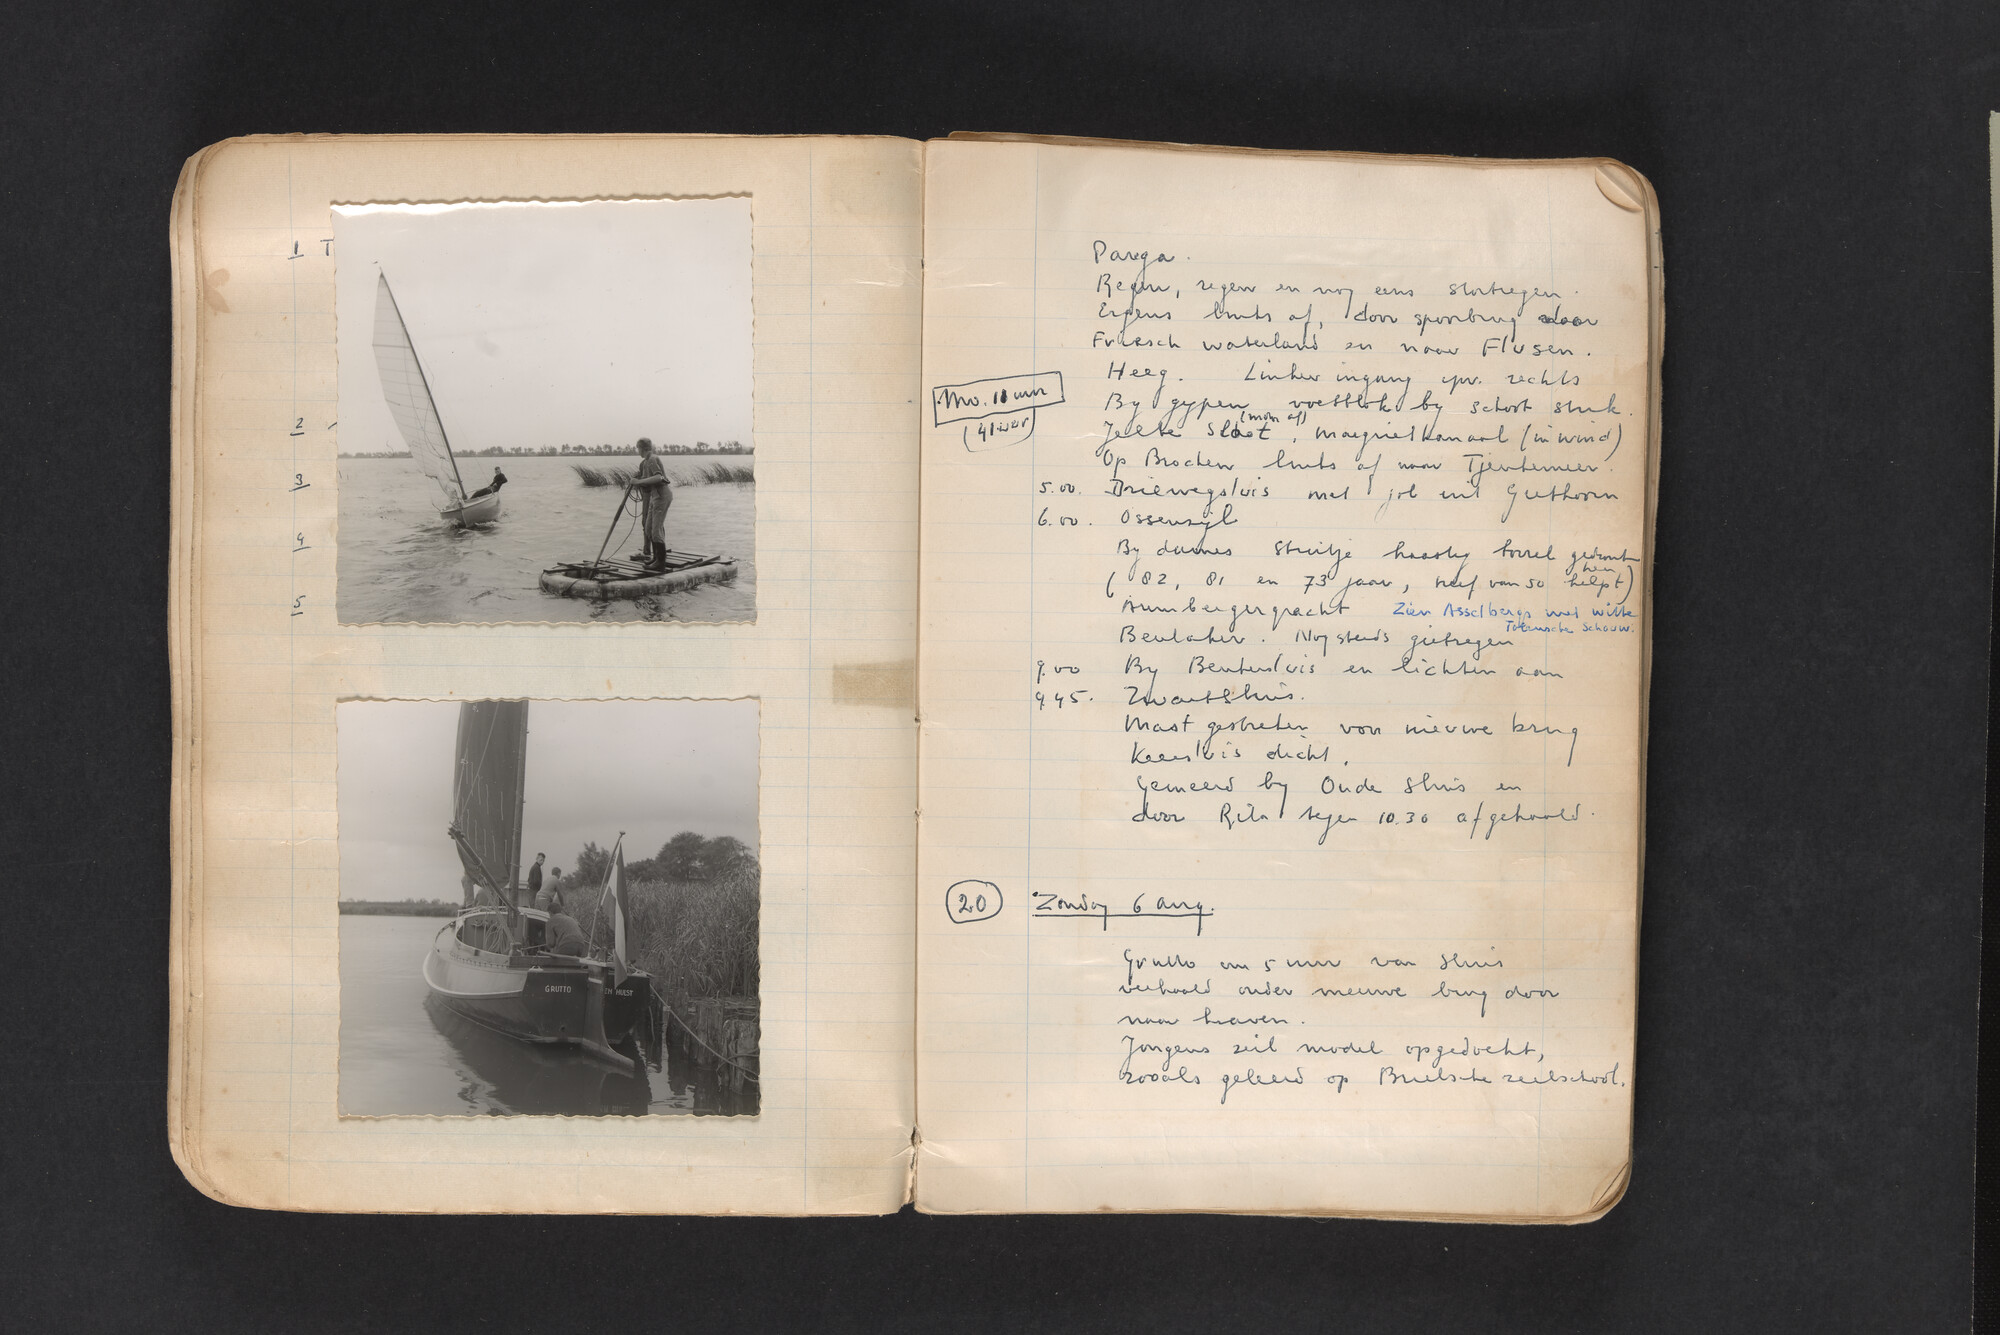 1 T
2
3
4
5
GRUTTO
HULST
Parega.
Regen, regen en nog eens stortregen.
Ergens links af, door spoorbrug door
Friesch waterland en naar Flusen.
Heeg. Linker ingang ipv. rechts
Mo. 11 uur
By gypen voetblok by schoot stuk.
(mom af)
(41 uur)
Jelte Sloot, Margrietkanaal (in wind)
Op Brocken links af naar Tjeukemeer.
5.00. Driewegsluis met jol uit Giethoorn
6.00. Ossenzijl
By dames Struitje haastig borrel gedronken
(82, 81 en 73 jaar, neef van 50 helpt)
Arembergergracht Zien Asselbergs met witte
Tholensche Schouw.
Beulaker. Nog steeds gietregen
9.00 By Beukersluis en lichten aan
9.45. Zwartsluis.
Mast gestreken voor nieuwe brug
Keersluis dicht.
Gemeerd by Oude Sluis en
door Rita tegen 10.30 afgehaald.
20 Zondag 6 aug.
Grutto om 5 uur van Sluis
verhaald onder nieuwe brug door
naar haven.
Jongens zeil model opgedoekt,
zooals geleerd op Brielsche zeilschool.